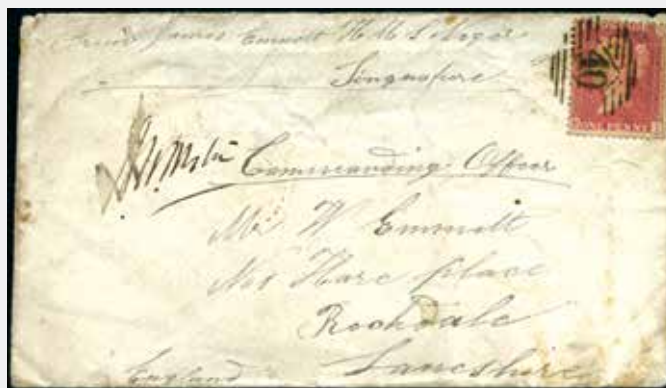 From James Emmott H M S
Singapore
Commanding Officer
Mr W Emmott
Hare place
Rochdale
Lancshire
England
40
ONE PENNY